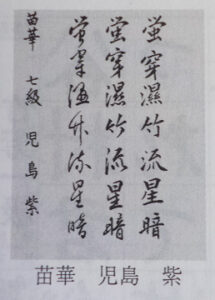 螢穿濕竹流星暗
螢穿濕竹流星暗
螢穿濕竹流星暗
苗華 七級 児島紫
苗華 児島 紫